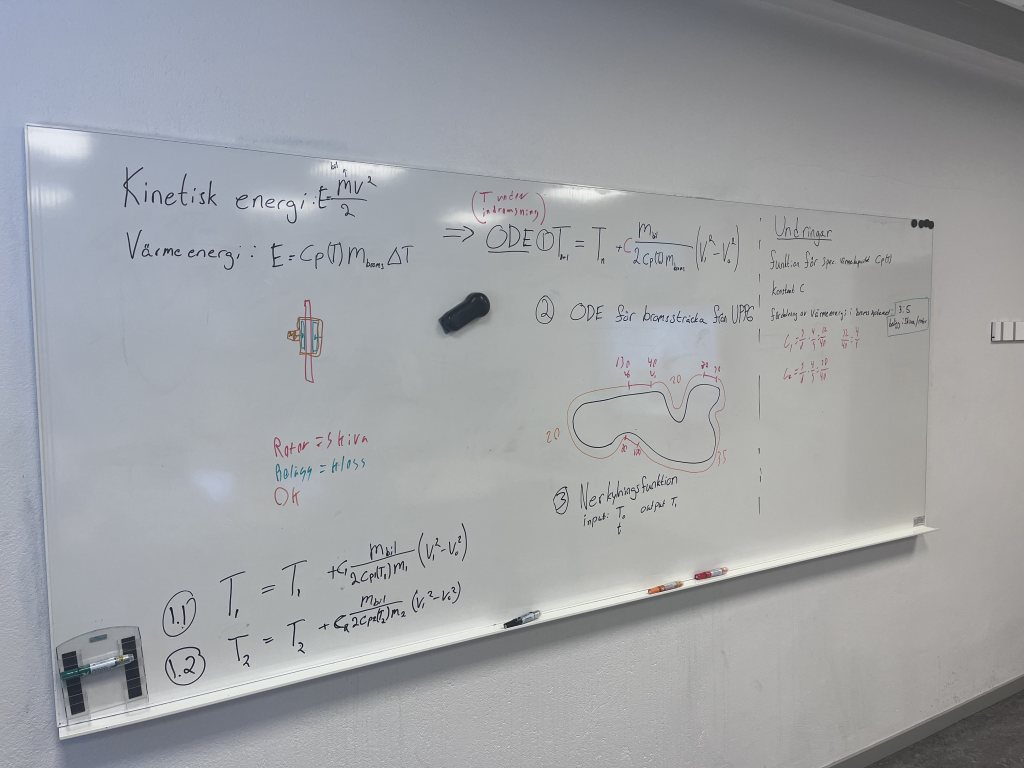 Kinetisk energi: E = mv²/2
bil
Värmeenergi: E = Cp(T) m_broms ΔT
(T under
inbromsning)
=> ODE ① T_n+1 = T_n + C m_bil / 2Cp(T) m_broms (V₁² - V₀²)
② ODE för bromssträcka från UPPG
130 40
20
20
35
③ Nerkylningsfunktion
input: T₀ output T₁
t
Rotor = Skiva
Belägg = Kloss
OK
1.1) T₁ = T₁ + C₁ m_bil / 2Cp(T₁) m₁ (V₁² - V₀²)
1.2) T₂ = T₂ + C₂ m_bil / 2Cp₂(T₂) m₂ (V₁² - V₀²)
Undringar
funktion för spec värmekapacitet Cp(t)
Konstant C
fördelning av värmeenergi i bromssystemet